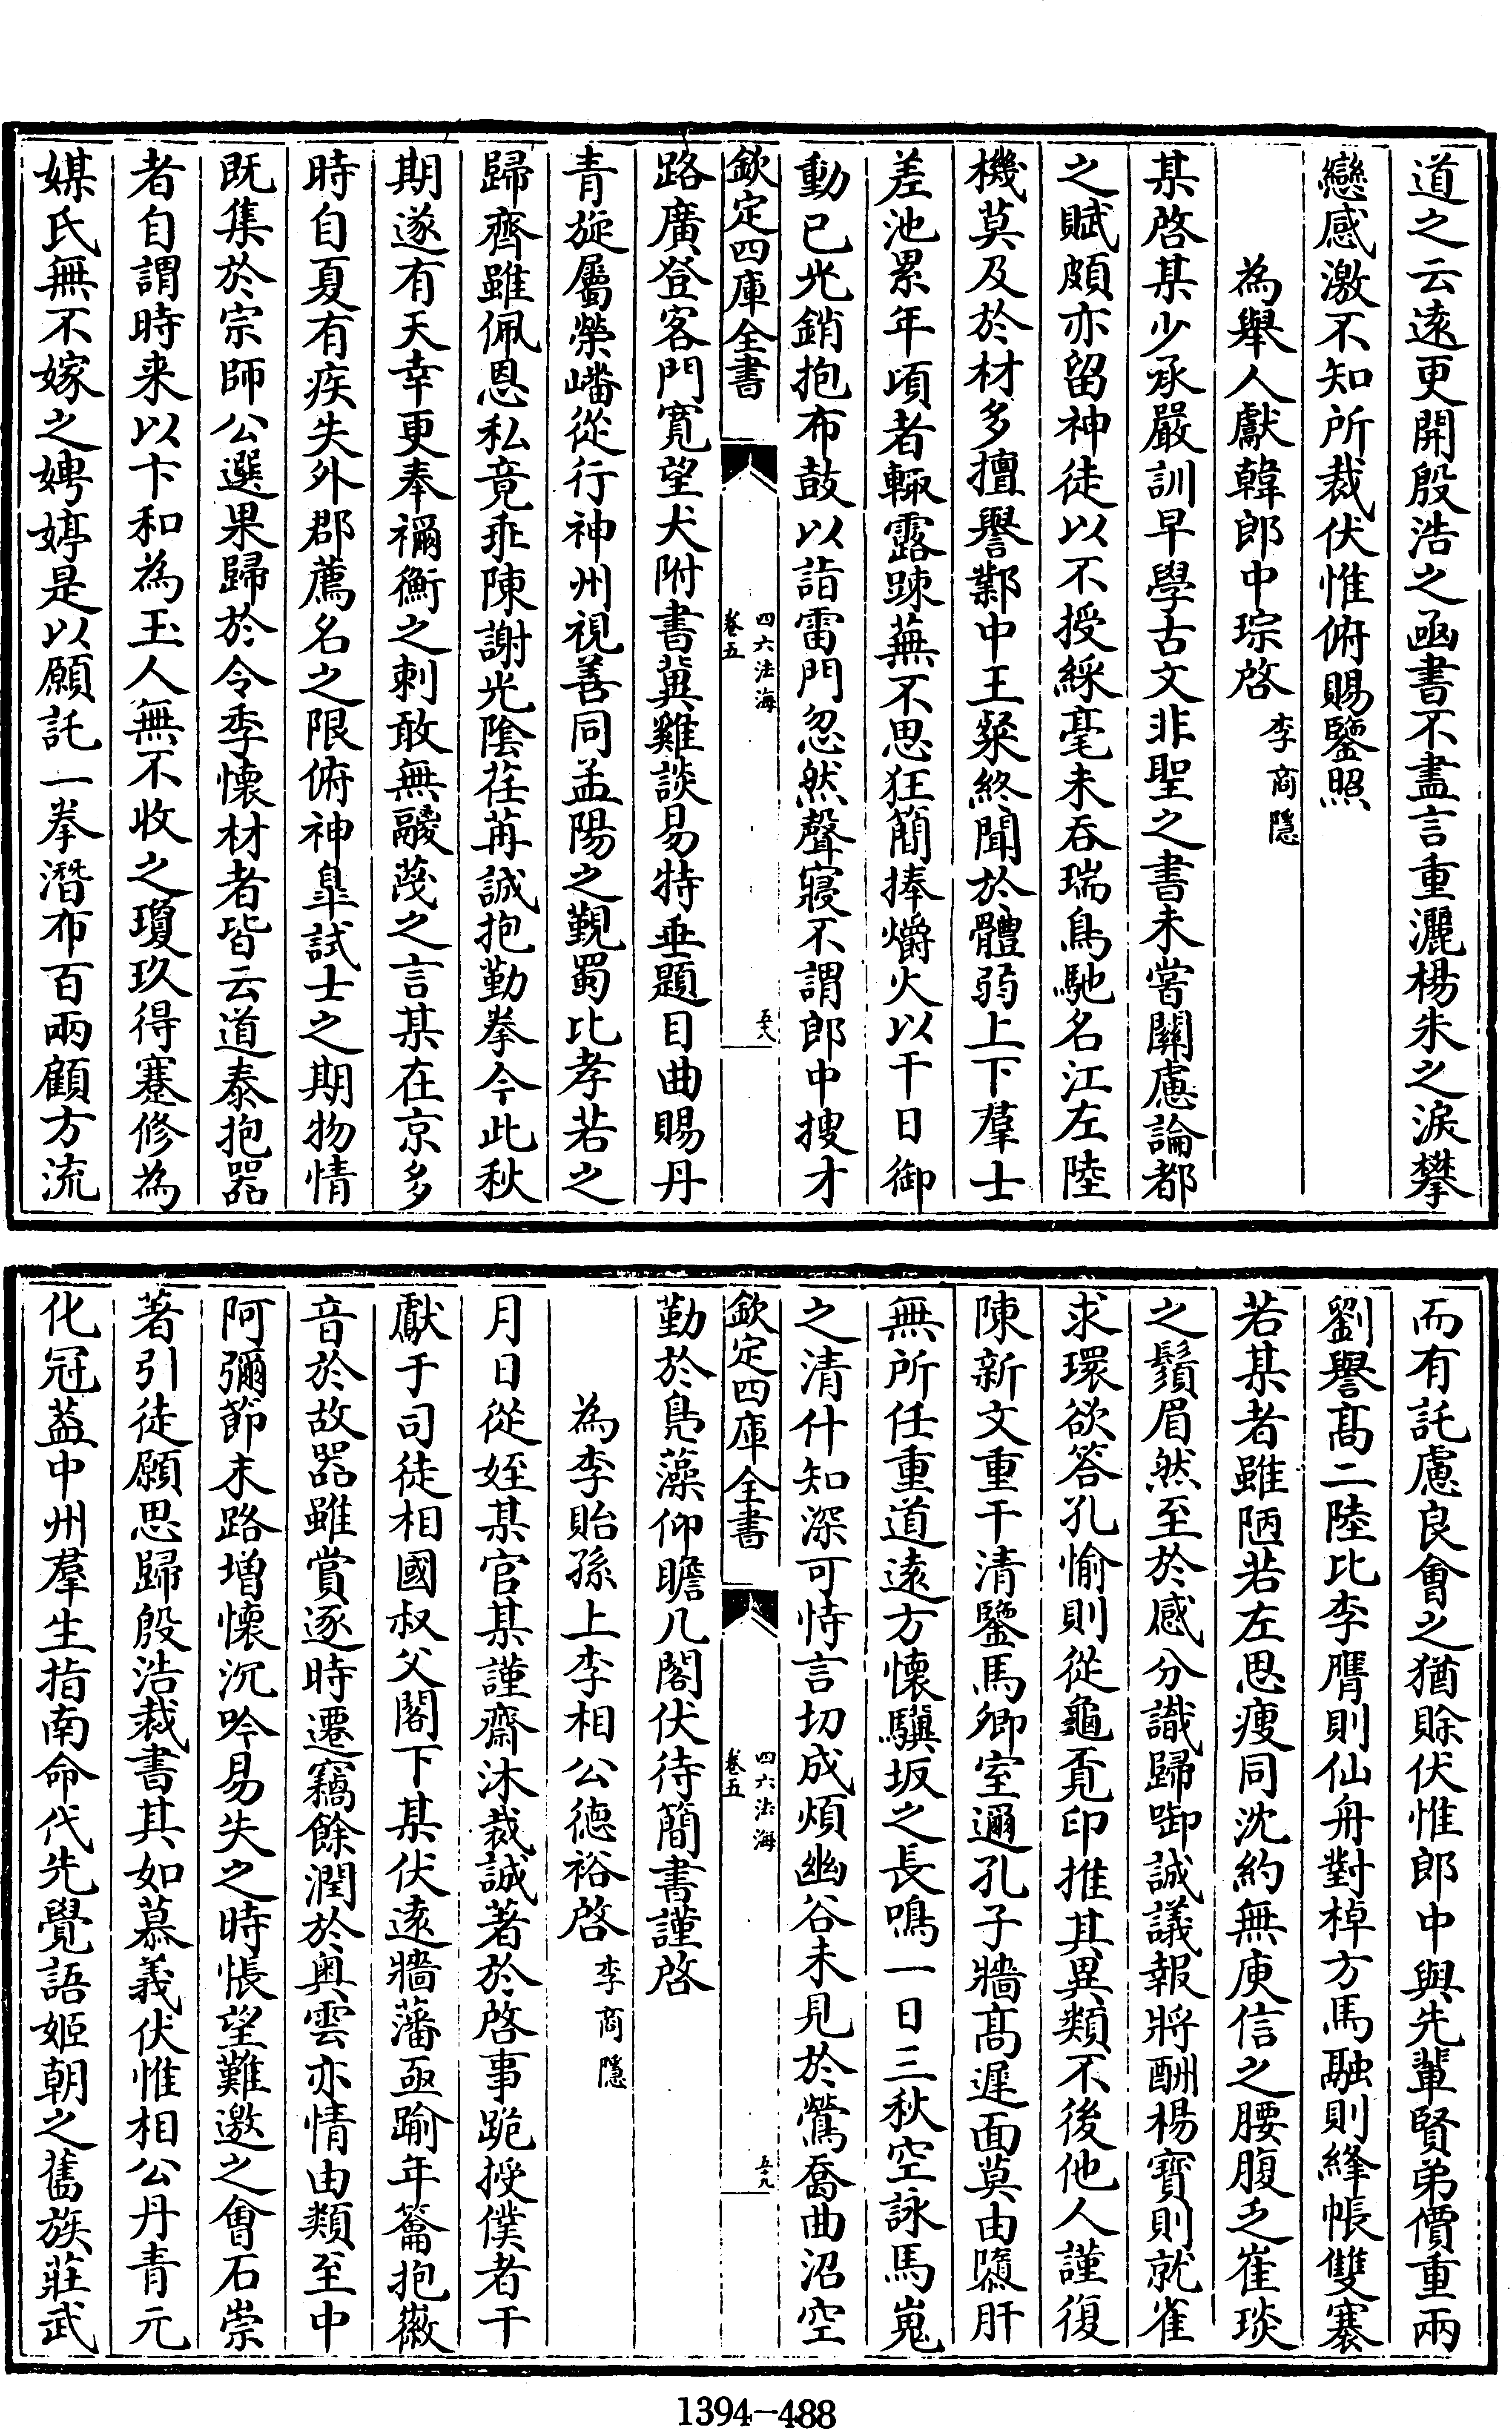 道之云遠更開殷浩之函書不盡言重灑楊朱之淚攀
戀感激不知所裁伏惟俯賜鑒照
為舉人獻韓郎中琮啓 李商隱
某啓某少承嚴訓早學古文非聖之書未嘗關慮論都
之賦頗亦留神徒以不授綵毫未吞瑞鳥馳名江左陸
機莫及於材多擅譽鄴中王粲終聞於體弱上下羣士
差池累年頃者輒露踈蕪不思狂簡捧爝火以干日御
動已光銷抱布鼓以詣雷門忽然聲寢不謂郎中搜才
欽定四庫全書 四六法海 卷五 五十八
路廣登客門寛望犬附書冀雞談易特垂題目曲賜丹
青旋屬榮㠜從行神州視善同孟陽之觀蜀比孝若之
歸齊雖佩恩私竟乖陳謝光陰荏苒誠抱勤拳今此秋
期遂有天幸更奉禰衡之刺敢無鬷蔑之言某在京多
時自夏有疾失外郡薦名之限俯神臯試士之期物情
既集於宗師公選果歸於令季懷材者皆云道泰抱器
者自謂時来以卞和為玉人無不收之瓊玖得蹇修為
媒氏無不嫁之娉婷是以願託一拳潛布百兩顧方流
而有託慮良會之猶賒伏惟郎中與先輩賢弟價重兩
劉譽髙二陸比李膺則仙舟對棹方馬融則絳帳雙褰
若某者雖陋若左思瘦同沈約無庾信之腰腹乏崔琰
之鬚眉然至於感分識歸啣誠議報將酬楊寶則就雀
求環欲答孔愉則從龜覔印推其異類不後他人謹復
陳新文重干清鑒馬卿室邇孔子牆髙遲面莫由隳肝
無所任重道遠方懷驥坂之長鳴一日三秋空詠馬嵬
之清什知深可恃言切成煩幽谷未見於鶯喬曲沼空
欽定四庫全書 四六法海 卷五 五十九
勤於鳬藻仰瞻几閣伏待簡書謹啓
為李貽孫上李相公德裕啓 李商隱
月日從姪某官某謹齋沐裁誠著於啓事跪授僕者干
獻于司徒相國叔父閣下某伏遠牆藩亟踰年籥抱徽
音於故器雖賞逐時遷竊餘潤於奥雲亦情由類至中
阿彌節末路增懷沉吟易失之時悵望難邀之會石崇
著引徒願思歸殷浩裁書其如慕義伏惟相公丹青元
化冠葢中州羣生指南命代先覺語姬朝之舊族莊武
1394-488